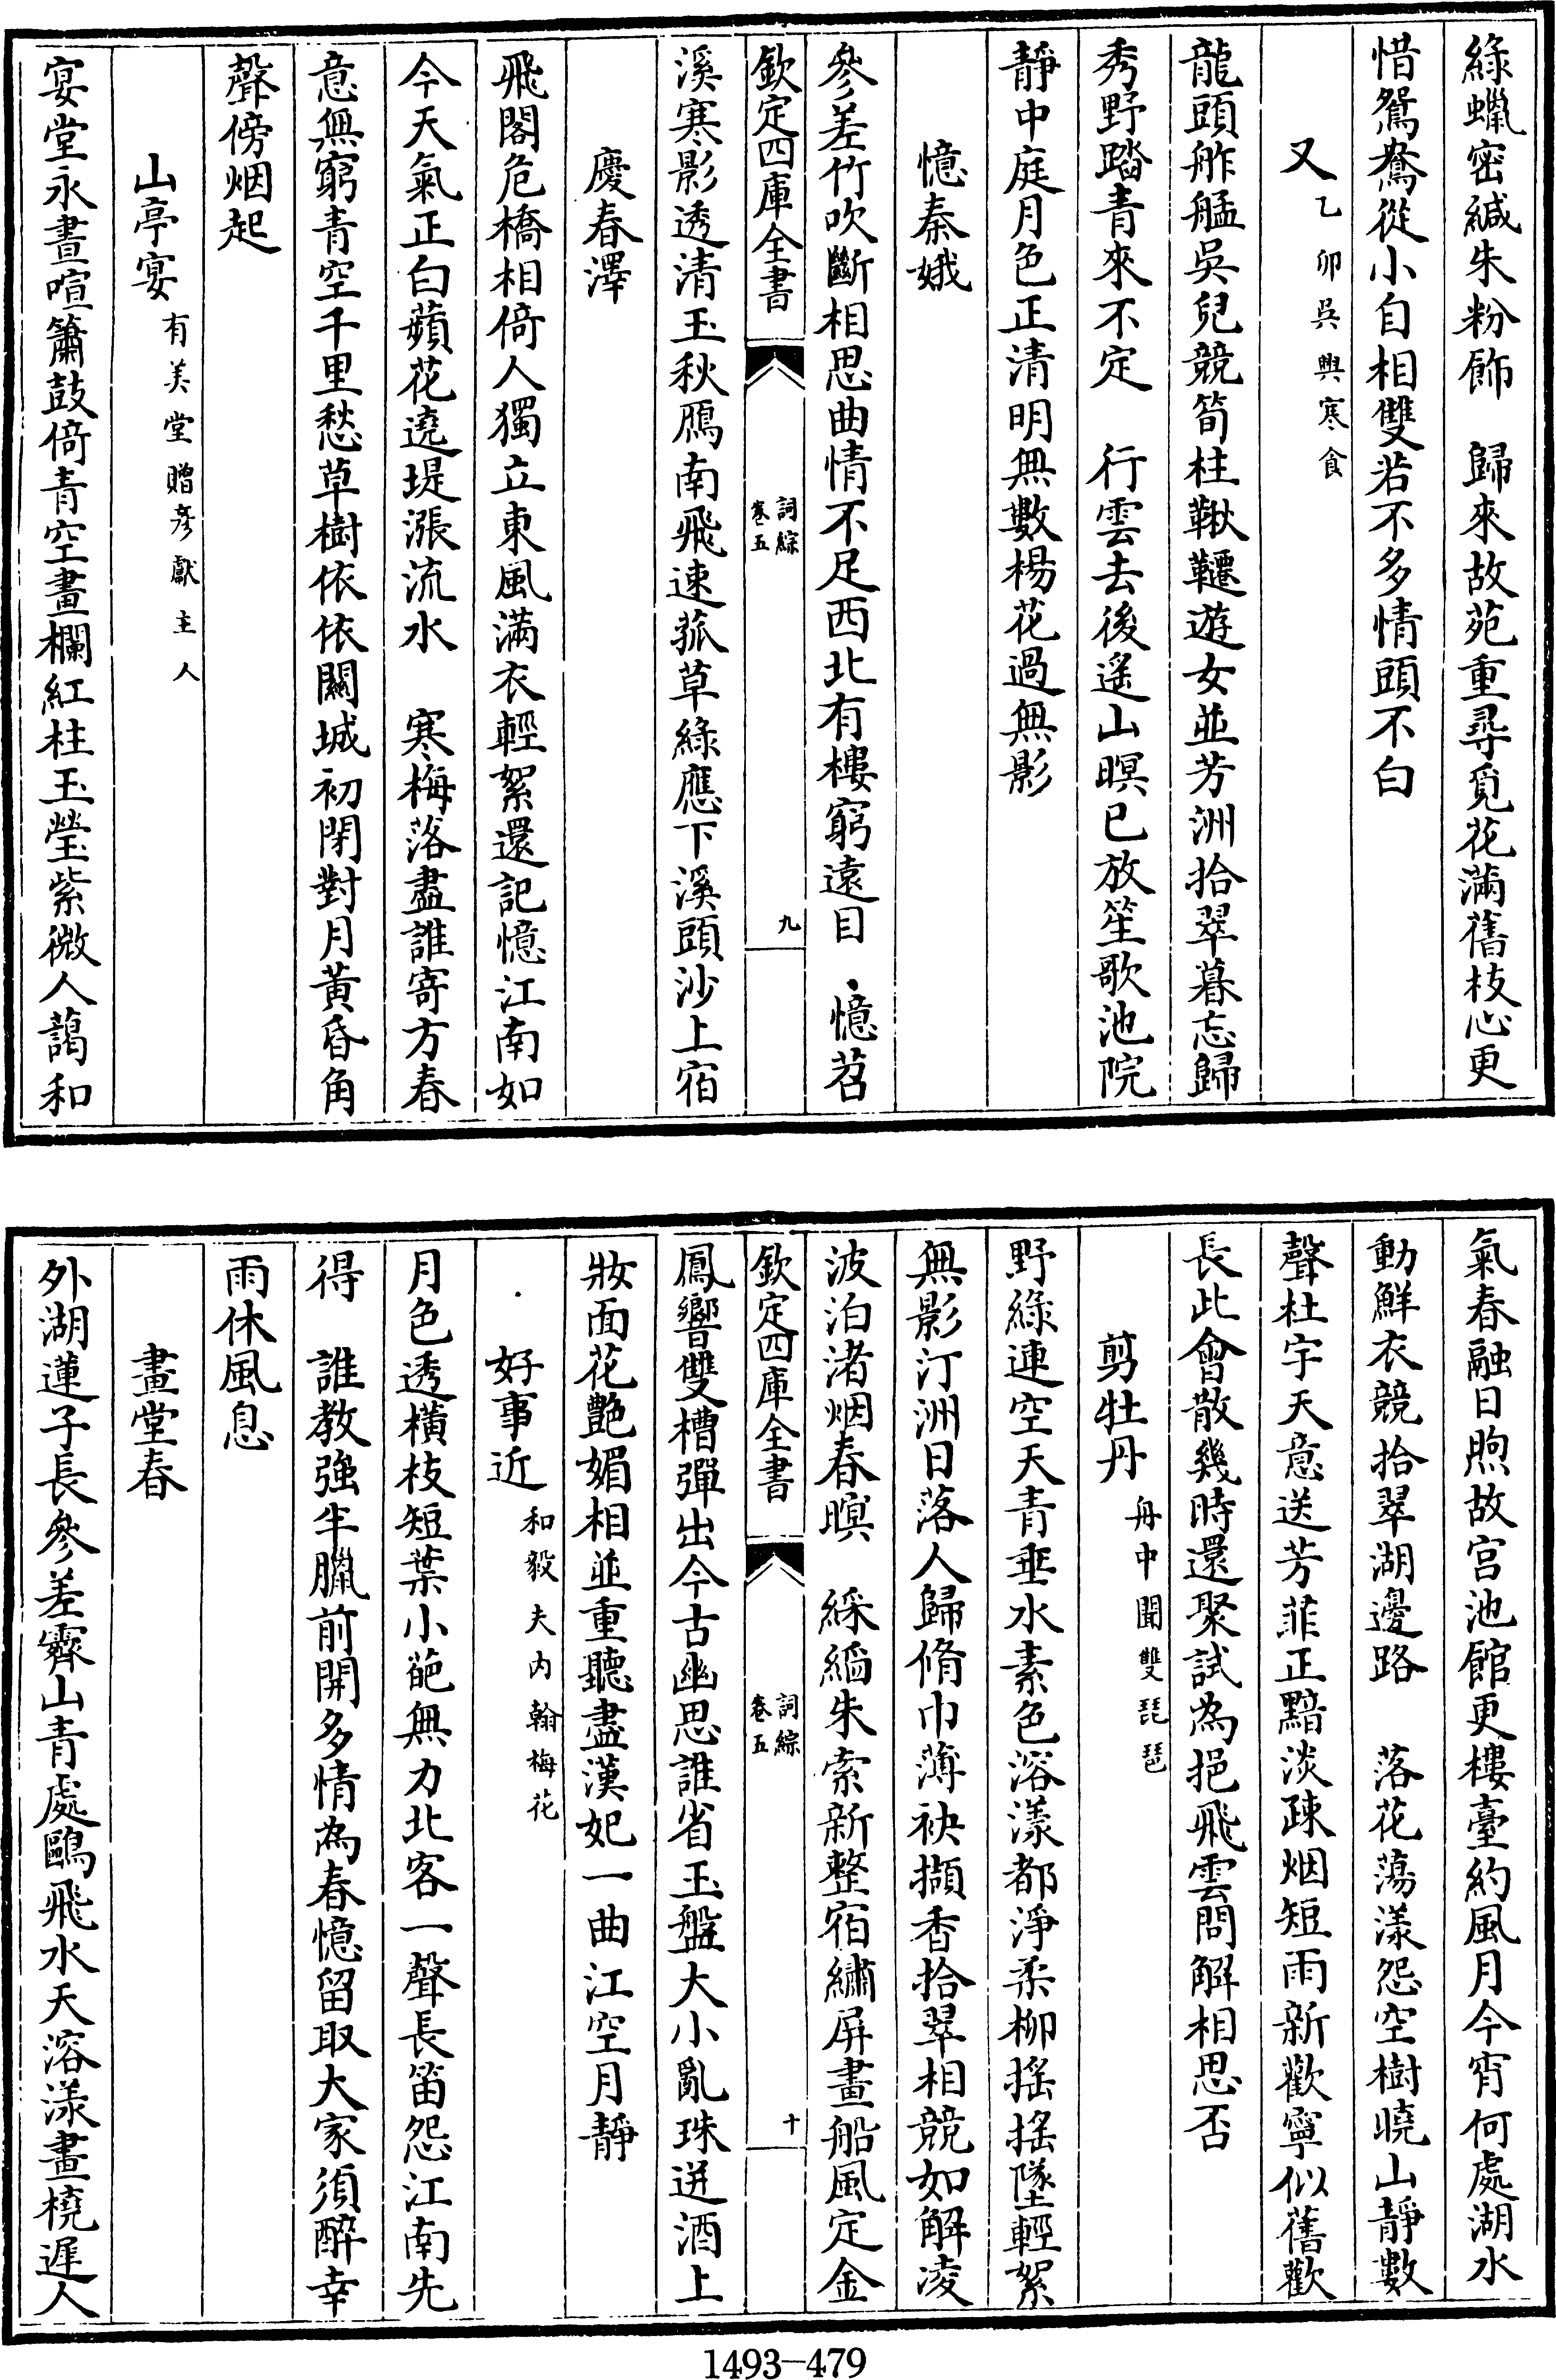 綠蠟密緘朱粉飾　歸來故苑重尋覓花滿舊枝心更
惜鴛鴦從小自相雙若不多情頭不白
又乙卯吳興寒食
龍頭舴艋吳兒競筍柱鞦韆遊女並芳洲拾翠暮忘歸
秀野踏青來不定　行雲去後遙山暝已放笙歌池院
靜中庭月色正清明無數楊花過無影
憶秦娥
參差竹吹斷相思曲情不足西北有樓窮遠目　憶苕
欽定四庫全書　詞綜卷五　九
溪寒影透清玉秋鴈南飛速菰草綠應下溪頭沙上宿
慶春澤
飛閣危橋相倚人獨立東風滿衣輕絮還記憶江南如
今天氣正白蘋花遶堤漲流水　寒梅落盡誰寄方春
意無窮青空千里愁草樹依依關城初閉對月黃昏角
聲傍烟起
山亭宴有美堂贈彥獻主人
宴堂永晝喧簫鼓倚青空畫欄紅柱玉瑩紫微人藹和
氣春融日煦故宮池館更樓臺約風月今宵何處湖水
動鮮衣競拾翠湖邊路　落花蕩漾怨空樹曉山靜數
聲杜宇天意送芳菲正黯淡疎烟短雨新歡寧似舊歡
長此會散幾時還聚試為挹飛雲問解相思否
剪牡丹舟中聞雙琵琶
野綠連空天青垂水素色溶漾都淨柔柳搖搖墜輕絮
無影汀洲日落人歸脩巾薄袂擷香拾翠相競如解凌
波泊渚烟春暝　綵縚朱索新整宿繡屏畫船風定金
欽定四庫全書　詞綜卷五　十
鳳響雙槽彈出今古幽思誰省玉盤大小亂珠迸酒上
妝面花艷媚相並重聽盡漢妃一曲江空月靜
好事近和毅夫內翰梅花
月色透橫枝短葉小葩無力北客一聲長笛怨江南先
得　誰教強半臘前開多情為春憶留取大家須醉幸
雨休風息
畫堂春
外湖蓮子長參差霽山青處鷗飛水天溶漾畫橈遲人
1493—479